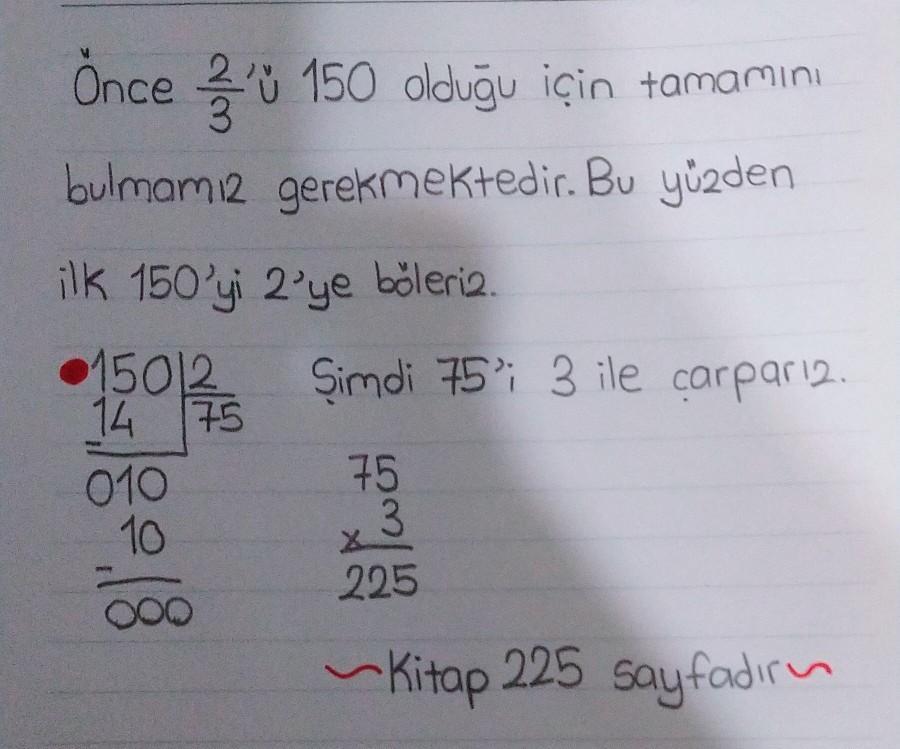 Önce 2/3'ü 150 olduğu için tamamını
bulmamız gerekmektedir. Bu yüzden
ilk 150'yi 2'ye böleriz.
150 2 Şimdi 75'i 3 ile çarparız.
14 75
-
010 75
10 x 3
-
000 225
~Kitap 225 sayfadır~